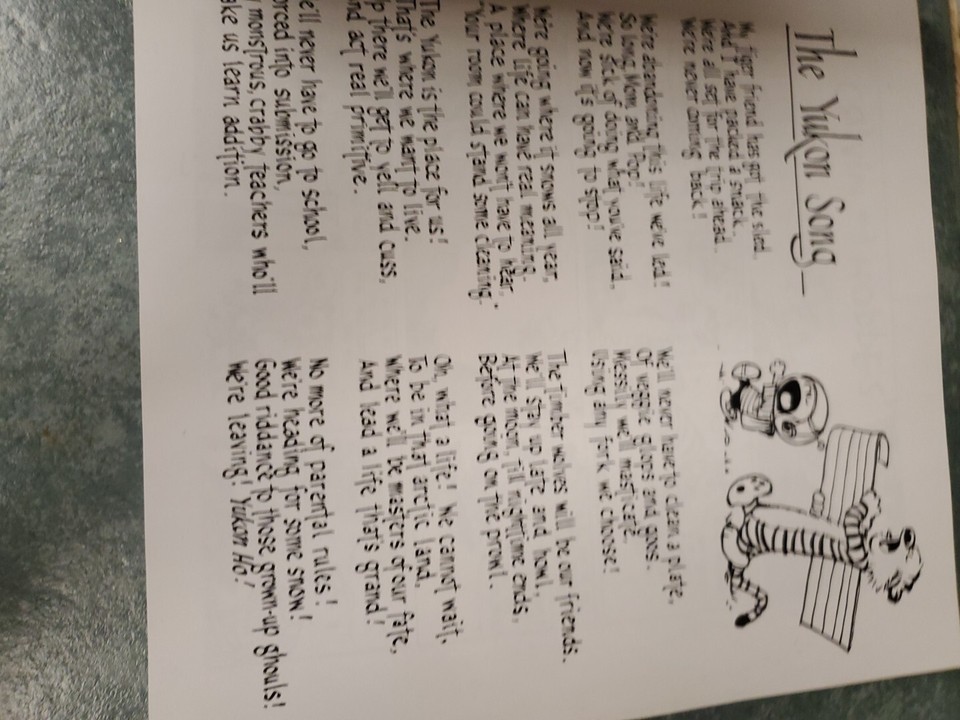 The Yukon Song
My tiger friend has got the sled,
And I have packed a snack.
We're all set for the trip ahead.
We're never coming back!
We're abandoning this life we've led!
So long, Mom and Pop!
We're sick of doing what you've said,
And now it's going to stop!
We're going where it snows all year,
Where life can have real meaning.
A place where we won't have to hear,
"Your room could stand some cleaning."
The Yukon is the place for us!
That's where we want to live.
Up there we'll get to yell and cuss,
And act real primitive.
e'll never have to go to school,
orced into submission,
monstrous, crabby teachers who'll
ake us learn addition.
We'll never have to clean a plate,
Of veggie glops and goos.
Messily we'll masticate,
Using any fork we choose!
The timber wolves will be our friends.
We'll stay up late and howl,
At the moon, till nighttime ends,
Before going on the prowl.
Oh, what a life! We cannot wait,
To be in that arctic land,
Where we'll be masters of our fate,
And lead a life that's grand!
No more of parental rules!
We're heading for some snow!
Good riddance to those grown-up ghouls!
We're leaving! Yukon Ho!